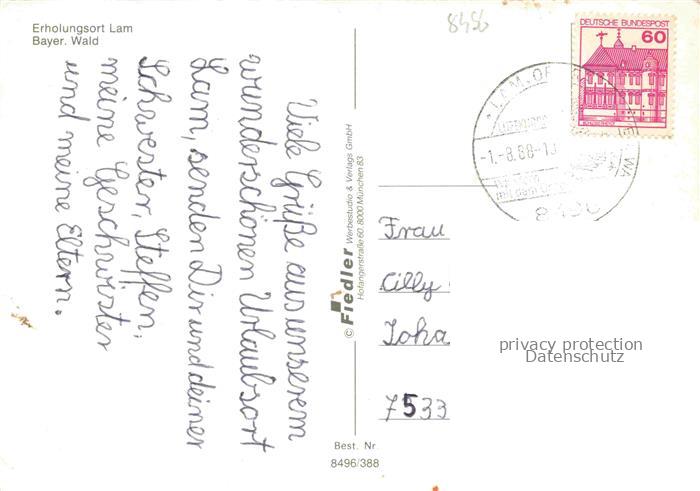 Erholungsort Lam
Bayer. Wald
8496
DEUTSCHE BUNDESPOST
60
LAM, OF
-1.-8.88-1
8496
Viele Grüße aus unserem
wunderschönen Urlaubsort
Lam, senden Dir und deiner
Schwester, Steffen,
meine Geschwister
und meine Eltern.
© Fiedler Werbestudio & Verlags GmbH
Hofangerstraße 60, 8000 München 83
Frau
Cilly
Joha
7533
privacy protection
Datenschutz
Best. Nr.
8496/388